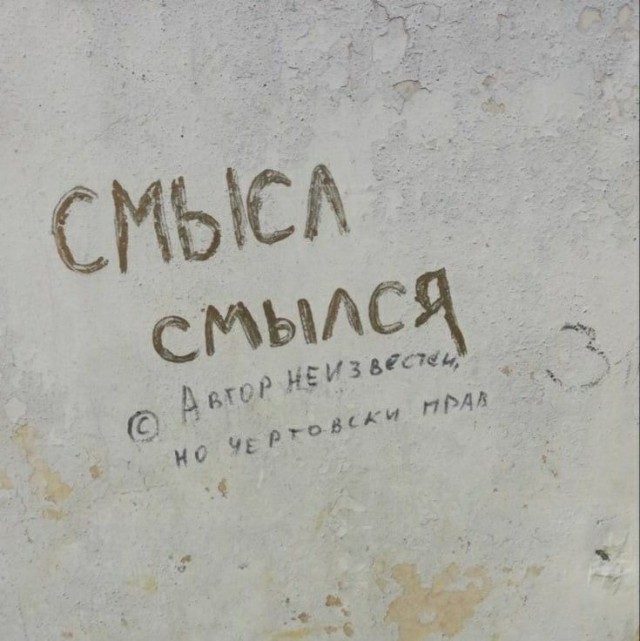 СМЫСЛ
СМЫЛСЯ
© АВТОР НЕИЗВЕСТЕН,
НО ЧЕРТОВСКИ ПРАВ
З